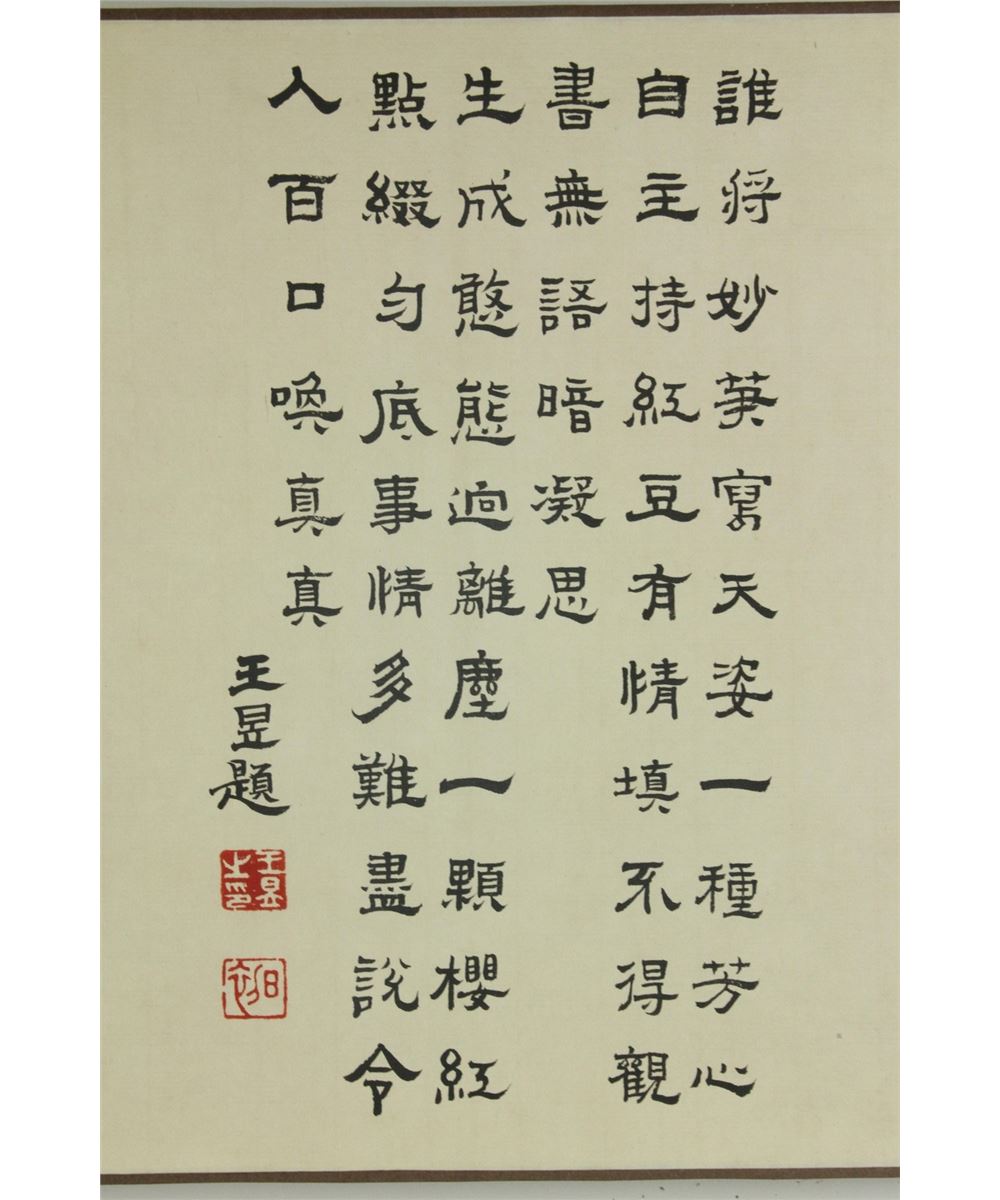 誰將妙筆寫天姿一種芳心
自主持紅豆有情填不得觀
書無語暗凝思
生成憨態逈離塵一顆櫻紅
點綴勻底事情多難盡說令
人百口喚真真
王昱題
王昱之印
日初